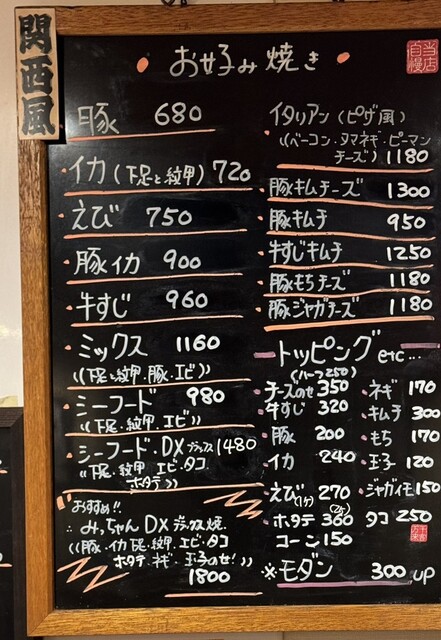 関西風
お好み焼き
当店自慢
豚 680
イカ(下足と紋甲) 720
えび 750
豚イカ 900
牛すじ 960
ミックス 1160
((下足と紋甲・豚・エビ))
シーフード 980
(下足・紋甲・エビ))
シーフード・DXデラックス 1480
(下足・紋甲・エビ・タコ
ホタテ))
おすすめ!!
みっちゃんDXデラックス焼
((豚・イカ下足・紋甲・エビ・タコ
ホタテ・ネギ・玉子のせ!))
1800
イタリアン(ピザ風)
((ベーコン・タマネギ・ピーマン
チーズ) 1180
豚キムチーズ 1300
豚キムチ 950
牛すじキムチ 1250
豚もちチーズ 1180
豚ジャガチーズ 1180
トッピングetc...
(ハーフ250)
チーズのせ 350
牛すじ 320
豚 200
イカ 240
えび(1ケ) 270
ホタテ(2ケ) 360
コーン 150
ネギ 170
キムチ 300
もち 170
玉子 120
ジャガイモ 150
タコ 250
※モダン 300 up